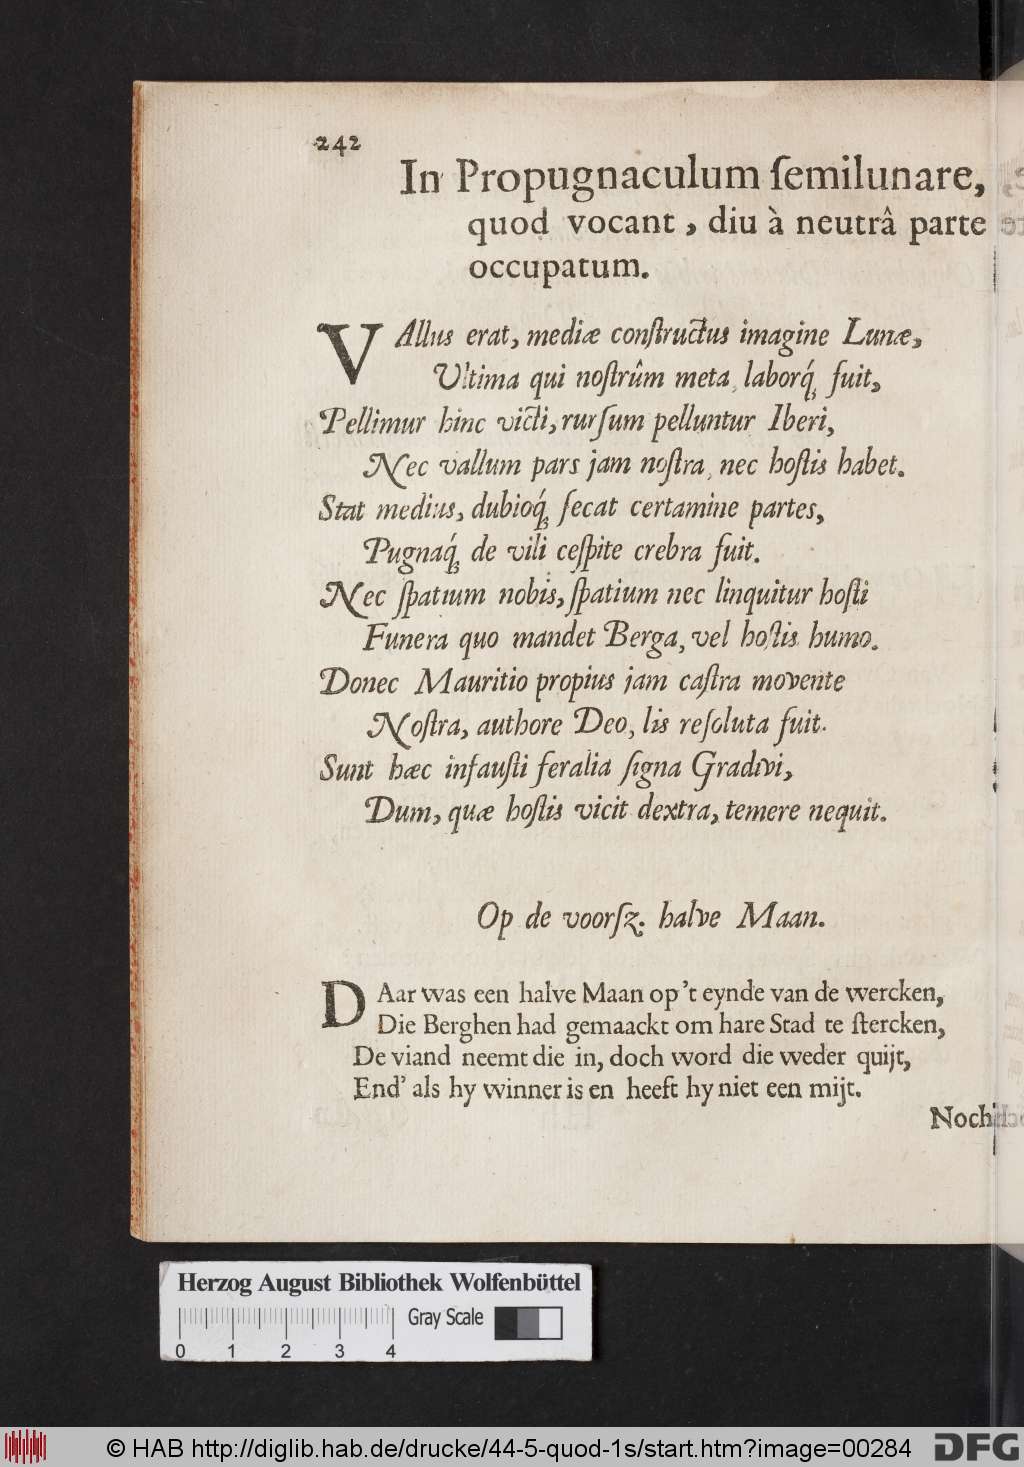 242
In Propugnaculum ſemilunare,
quod vocant, diu à neutrâ parte
occupatum.
VAllus erat, mediæ conſtructus imagine Lunæ,
Ultima qui noſtrûm meta, laborq́ꝫ fuit,
Pellimur hinc victi, rurſum pelluntur Iberi,
Nec vallum pars jam noſtra, nec hoſtis habet.
Stat medius, dubioq́ꝫ ſecat certamine partes,
Pugnaq́ꝫ de vili ceſpite crebra fuit.
Nec ſpatium nobis, ſpatium nec linquitur hoſti
Funera quo mandet Berga, vel hoſtis humo.
Donec Mauritio propius jam caſtra movente
Noſtra, authore Deo, lis reſoluta fuit.
Sunt hæc infauſti feralia ſigna Gradivi,
Dum, quæ hoſtis vicit dextra, temere nequit.
Op de voorſz. halve Maan.
DAar was een halve Maan op't eynde van de wercken,
Die Berghen had gemaackt om hare Stad te ſtercken,
De viand neemt die in, doch word die weder quijt,
End' als hy winner is en heeft hy niet een mijt.
Noch
Herzog August Bibliothek Wolfenbüttel
Gray Scale
0 1 2 3 4
© HAB http://diglib.hab.de/drucke/44-5-quod-1s/start.htm?image=00284
DFG